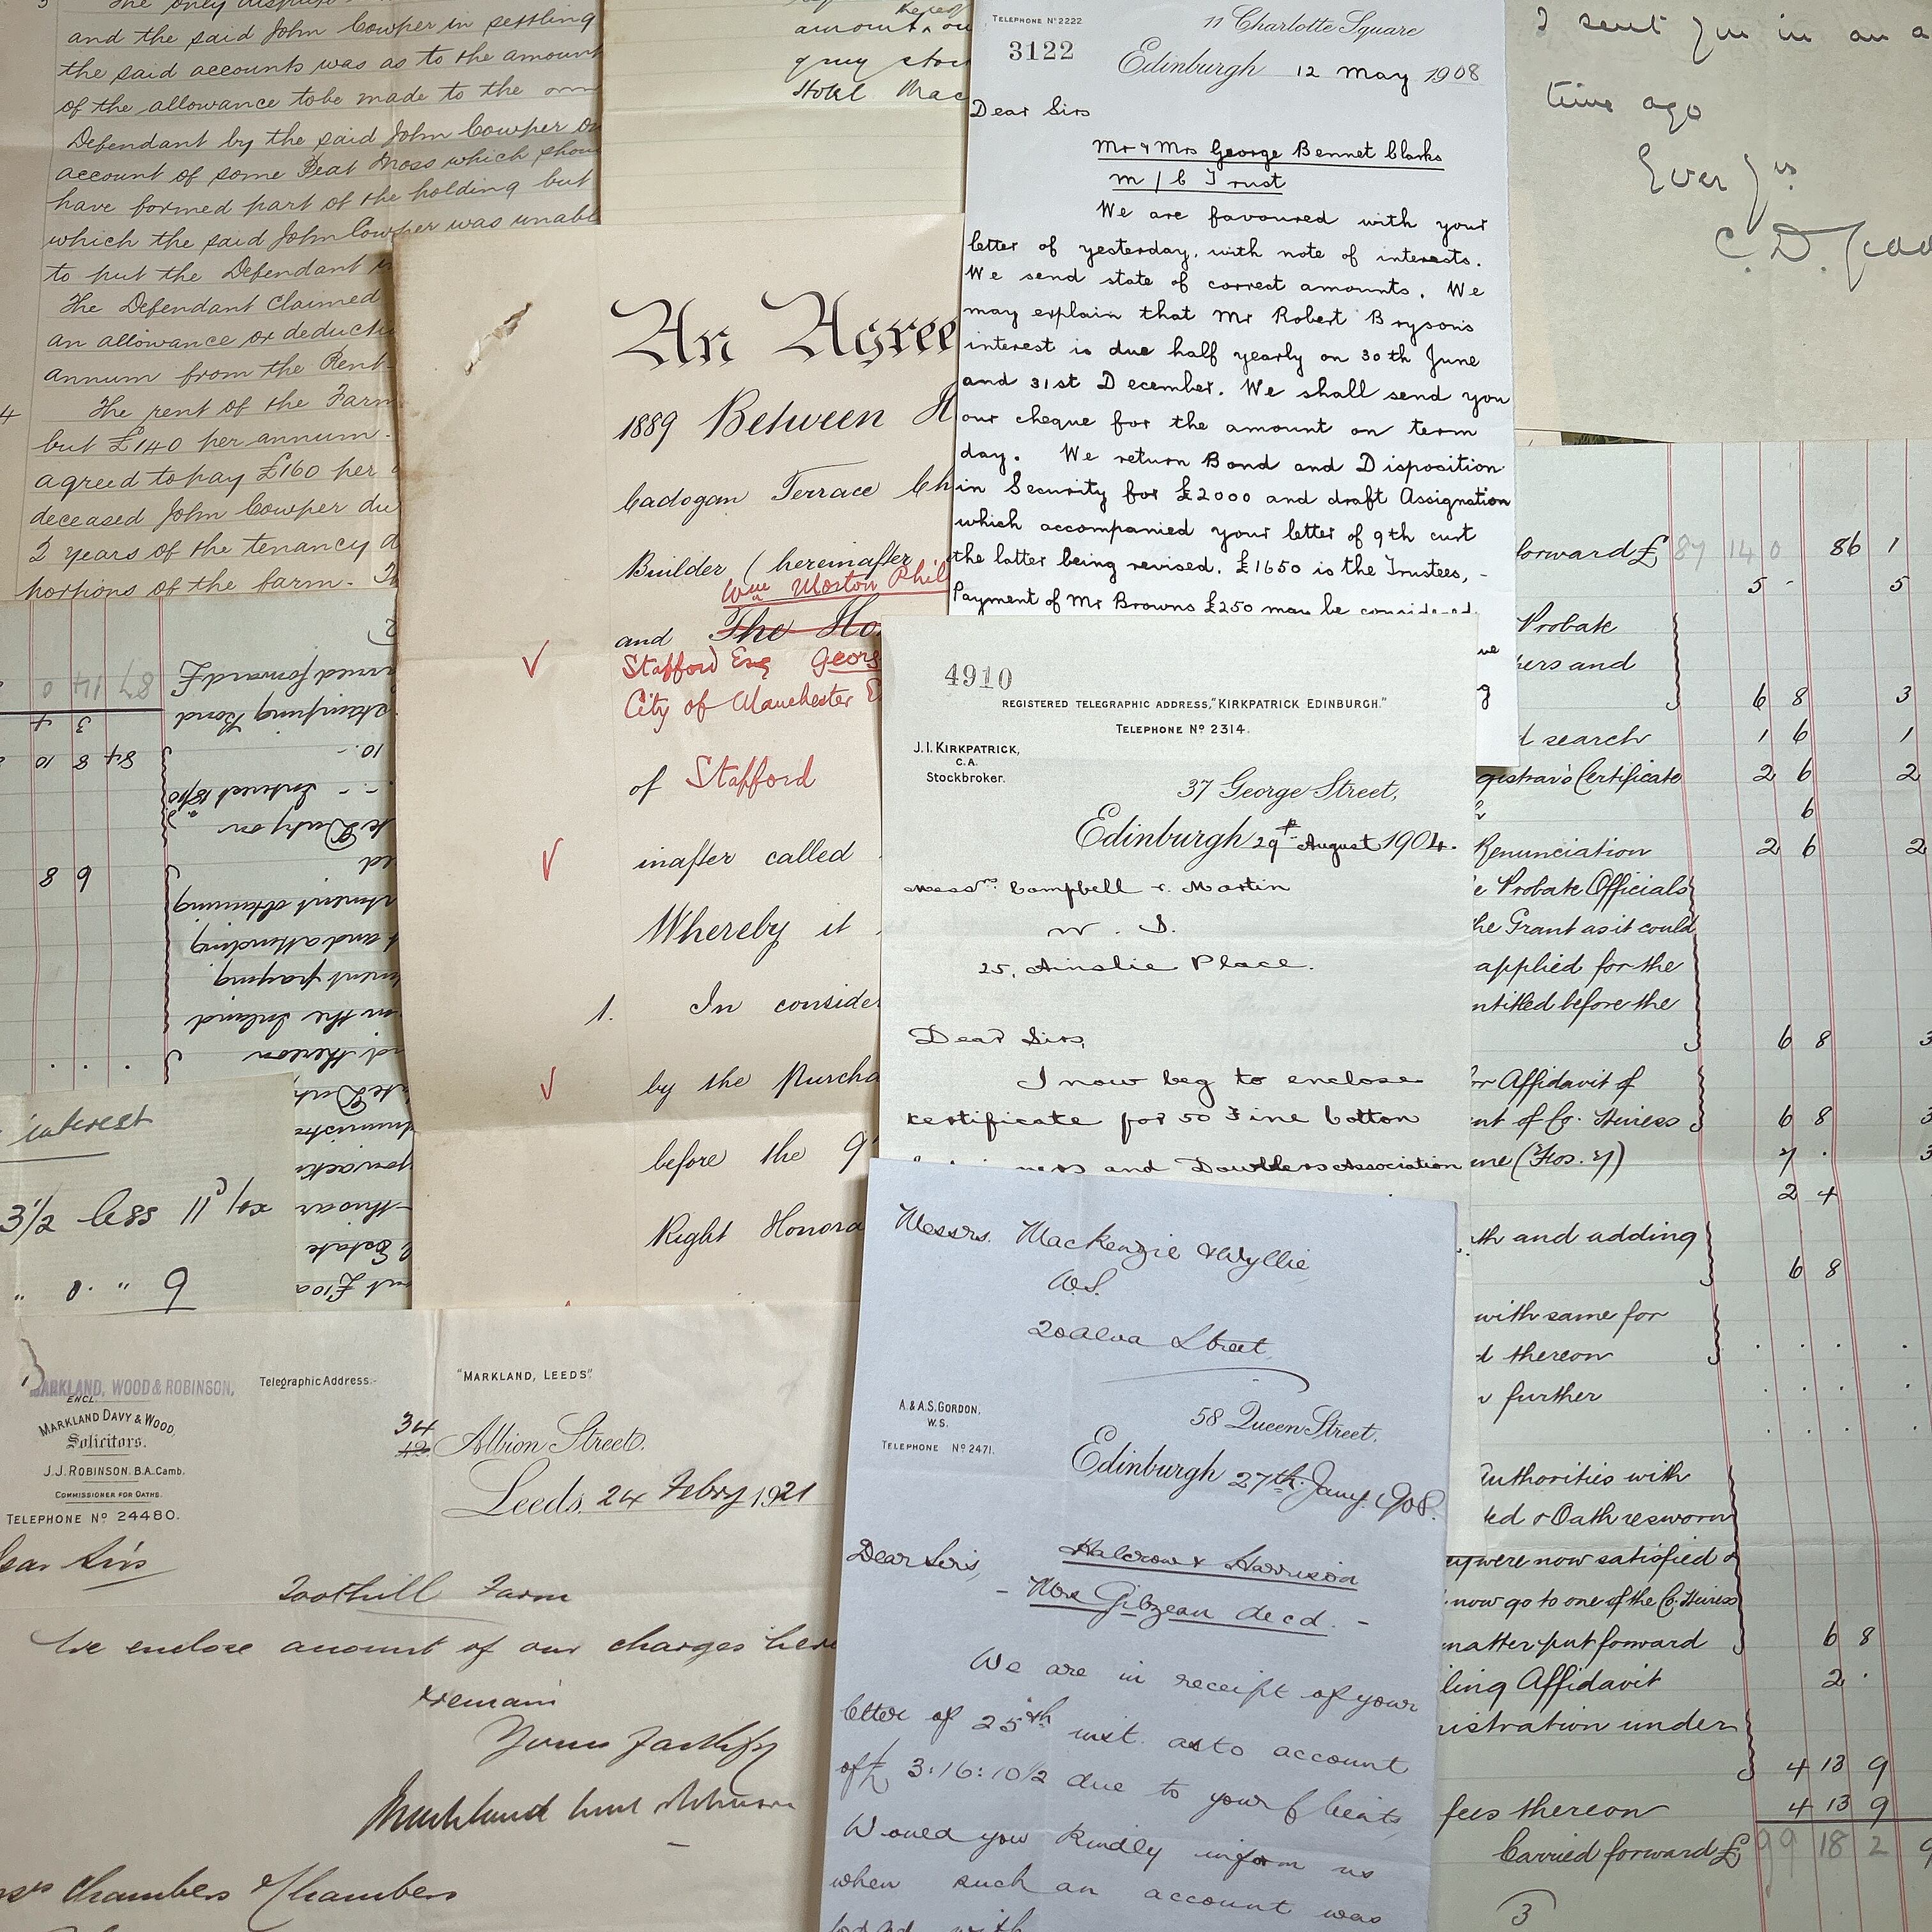 3 The only
and the said John Cowper in settling
the said accounts was as to the amount
of the allowance to be made to the
Defendant by the said John Cowper on
account of some Peat Moss which shou
have formed part of the holding but
which the said John Cowper was unabl
to put the Defendant in
The Defendant claimed
an allowance or deducti
annum from the Rent
4 The rent of the Farm
but £140 per annum.
agreed to pay £160 per
deceased John Cowper du
2 years of the tenancy
portions of the farm.
amount
grey
Hotel Mac
An Agree
1889 Between H
Cadogan Terrace Ch
Builder (hereinafter
Wm Morton Phil
and The Ho
Stafford Esq Georg
City of Manchester E
of Stafford
inafter called
Whereby it
1. In conside
by the Purcha
before the 9
Right Honora
TELEPHONE No 2222
3122
11 Charlotte Square
Edinburgh 12 May 1908
Dear Sirs
Mr & Mrs George Bennet Clarks
M/C Trust
We are favoured with your
letter of yesterday, with note of interests.
We send state of correct amounts. We
may explain that Mr Robert Bryson's
interest is due half yearly on 30th June
and 31st December. We shall send you
our cheque for the amount on term
day. We return Bond and Disposition
in Security for £2000 and draft Assignation
which accompanied your letter of 9th curt
the latter being revised. £1650 is the Trustees, -
Payment of Mr Browns £250 may be considered
I sent you in an a
time ago
Ever yrs
C.D.
4910
REGISTERED TELEGRAPHIC ADDRESS, "KIRKPATRICK EDINBURGH."
TELEPHONE No 2314.
J. I. KIRKPATRICK,
C.A.
Stockbroker.
37 George Street,
Edinburgh 29th August 1904.
Messrs Campbell & Martin
W. S.
25, Ainslie Place.
Dear Sirs,
I now beg to enclose
certificate for 50 Fine Cotton
and Doublers Association
Messrs. Mackenzie & Wyllie,
W.S.
20 Alva Street,
A. & A.S. GORDON,
W.S.
TELEPHONE No 2471.
58 Queen Street,
Edinburgh 27th Jany. 1908.
Dear Sirs,
Halcrow & Harrison
- Mrs Gibzean decd. -
We are in receipt of your
letter of 25th inst. as to account
of £3:16:10½ due to your clients,
Would you kindly inform us
when such an account was
carried forward £ 87 14 0
Stamping Bond 3 4
10. - 84 8 10
Interest
Duty on
6 8
and attending
paying
in the Inland
thereon
Estate
interest
3½ less 11
6 " 0 "
MARKLAND, WOOD & ROBINSON,
ENCL.
MARKLAND DAVY & WOOD,
Solicitors.
J. J. ROBINSON. B.A. Camb.
COMMISSIONER FOR OATHS.
TELEPHONE No 24480.
Telegraphic Address.-
"MARKLAND, LEEDS"
34
Albion Street.
Leeds, 24 Febry 1921
Dear Sirs
Toothill Farm
We enclose amount of our charges here
& remain
Yours faithfy
Markland Wood & Robinson
Chambers & Chambers
forward £ 87 14 0 86 1
5 - 5
Probate
and
6 8 3
search 1 6 1
gistrar's Certificate 2 6 2
6
Renunciation 2 6 2
Probate Officials
the Grant as it could
applied for the
ntitled before the
6 8 3
for Affidavit of
of Co. Heiress 6 8 3
(Fos. 7) 7 . 3
2 4
and adding
6 8
with same for
thereon
further
Authorities with
& Oath resworn
were now satisfied
now go to one of the Co. Heiress
matter put forward 6 8
ling Affidavit 2 .
istration under
4 13 9
fees thereon 4 13 9
Carried forward £ 99 18 2
3